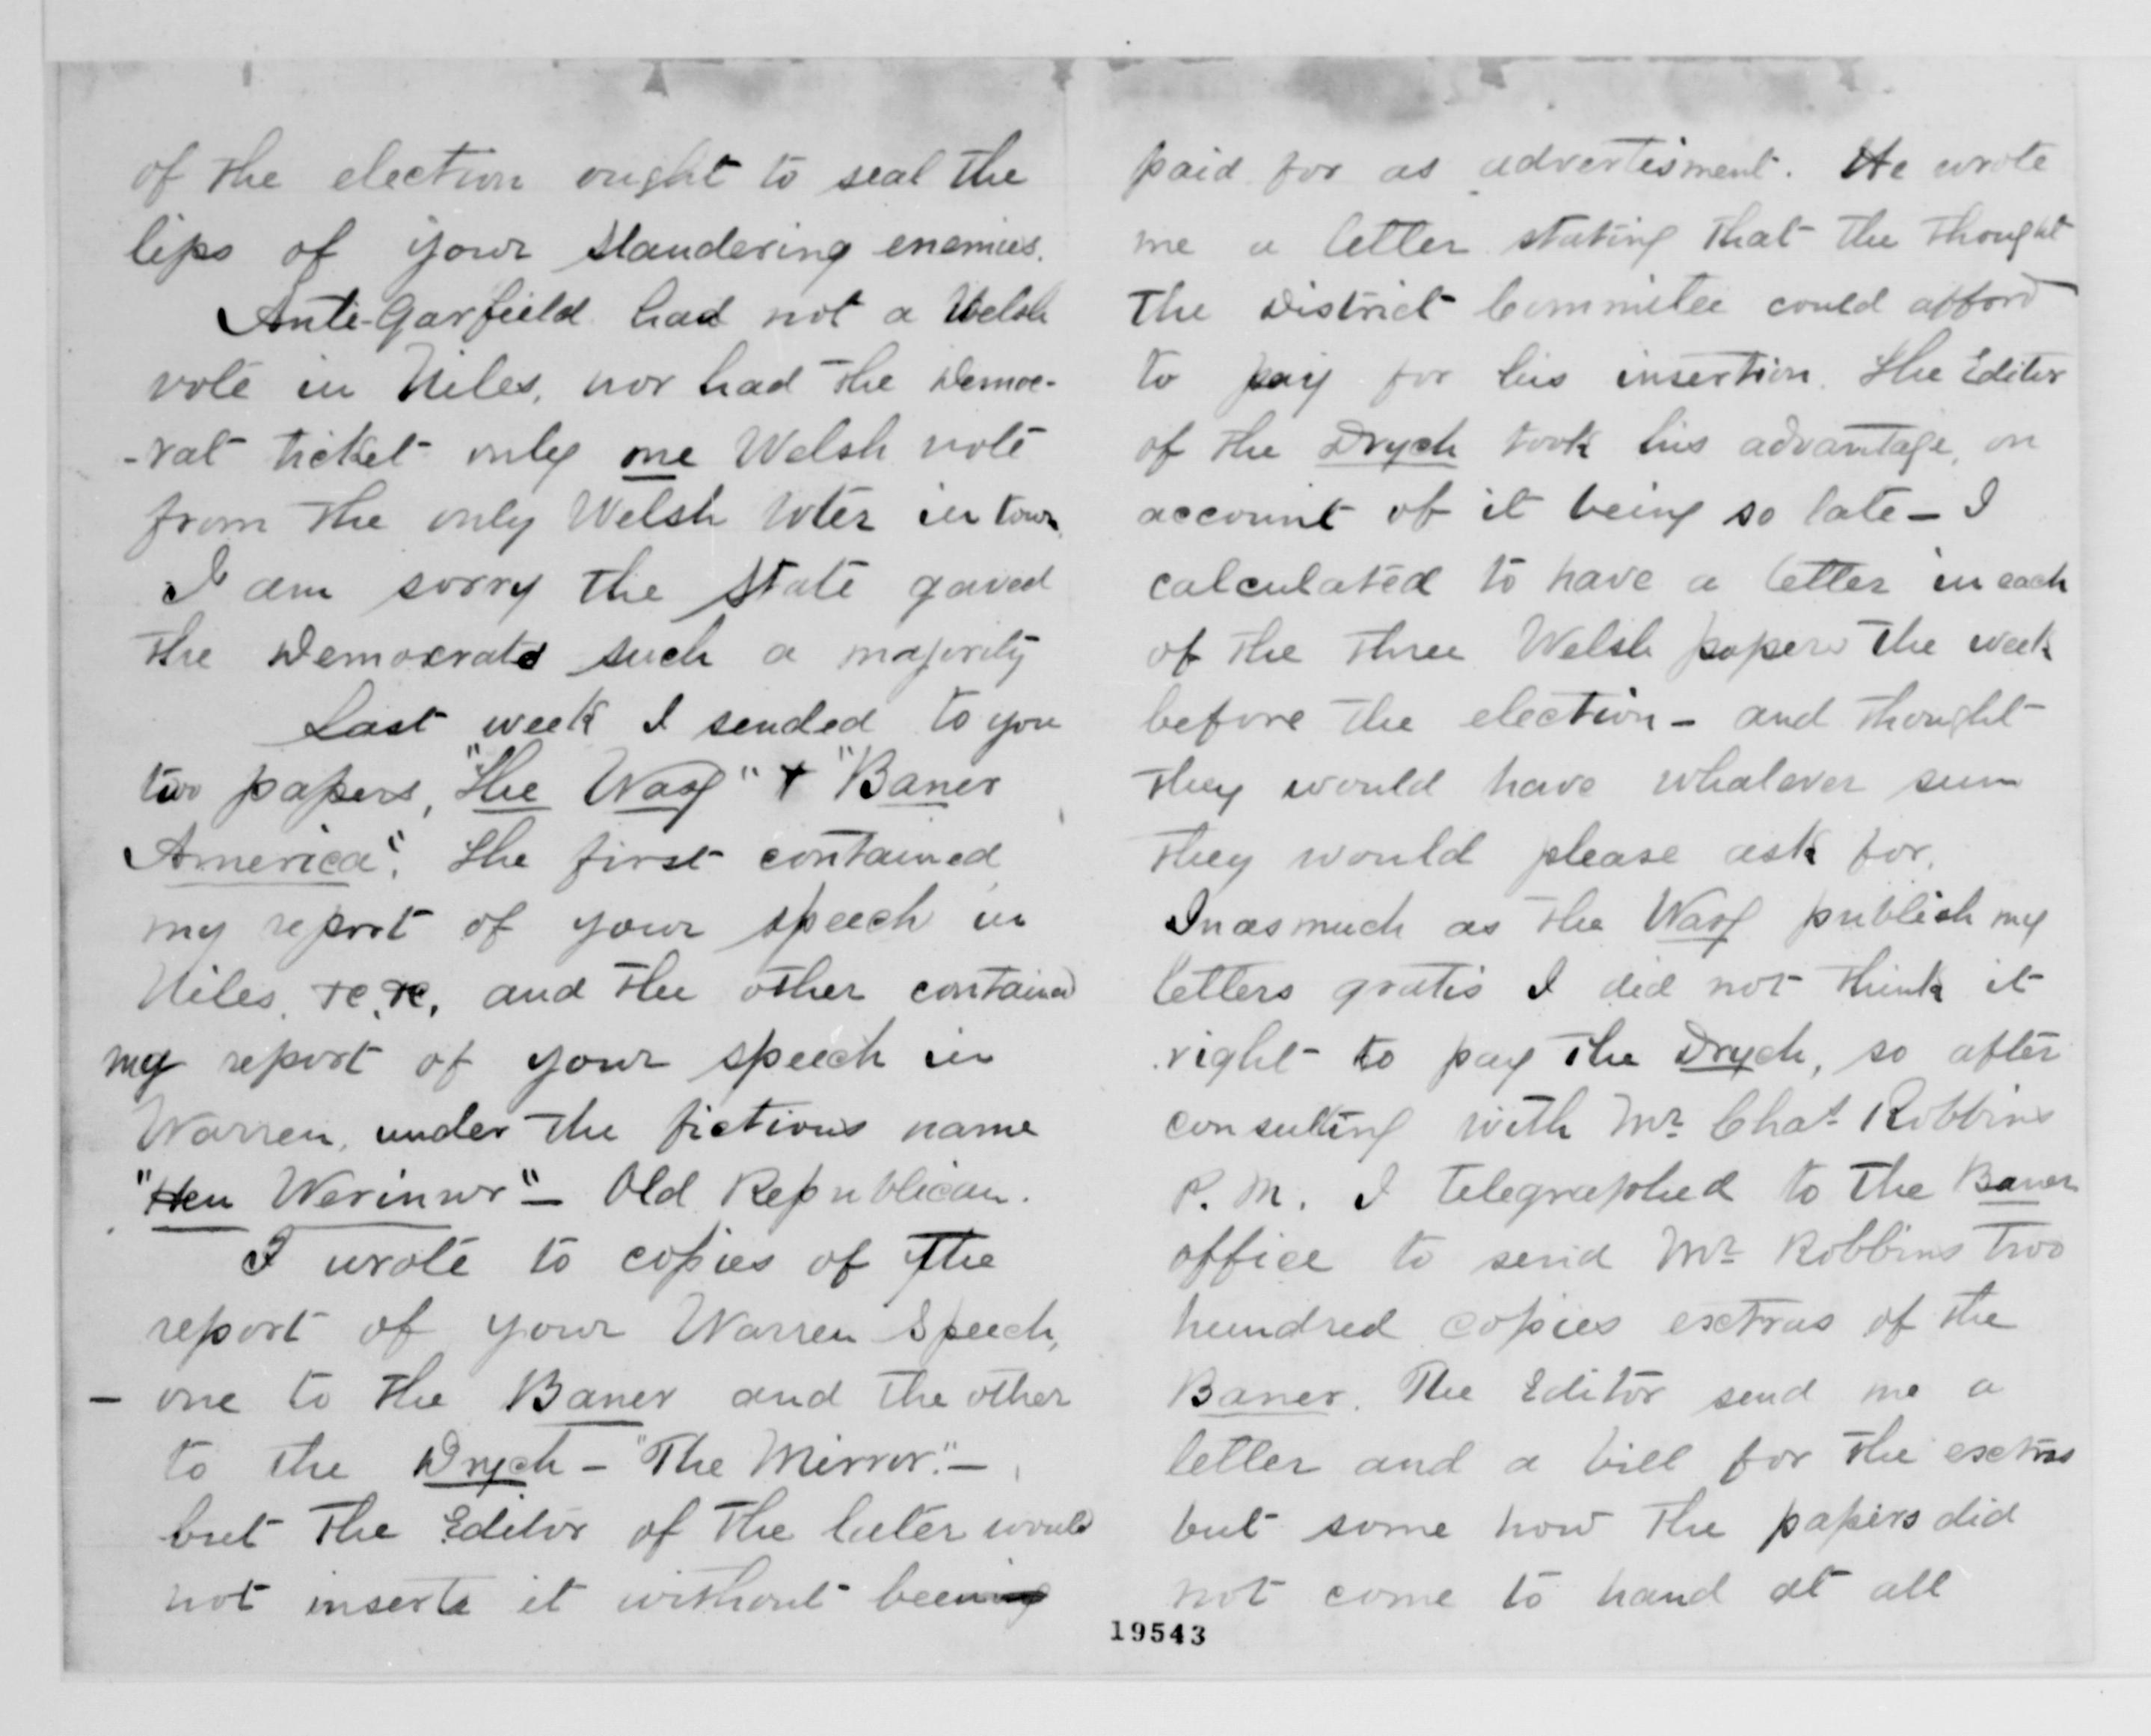 of the election ought to seal the
lips of your slandering enemies.
Anti-Garfield had not a Welsh
vote in Niles, nor had the Democ-
-rat ticket only one Welsh vote
from the only Welsh voter in town.
I am sorry the State gaved
the Democrats such a majority
Last week I sended to you
two papers, "The Wasg" & "Baner
America". The first contained
my report of your speech in
Niles, &c, &c, and the other contained
my report of your speech in
Warren, under the fictious name
"Hen Werinwr" – Old Republican.
I wrote to copies of the
report of your Warren Speech,
– one to the Baner and the other
to the Drych – "The Mirror." –
but the Editor of the later would
not inserte it without beening
paid for as advertisment. He wrote
me a letter stating that the thought
the District Committee could afford
to pay for his insertion. The Editor
of the Drych took his advantage, on
account of it being so late – I
calculated to have a letter in each
of the three Welsh papers the week
before the election – and thought
they would have whatever sum
they would please ask for.
Inasmuch as the Wasg publish my
letters gratis I did not think it
right to pay the Drych, so after
consulting with Mr Chas Robbins
P. M. I telegraphed to the Baner
office to send Mr Robbins two
hundred copies esctras of the
Baner. The Editor send me a
letter and a bill for the esctras
but some how the papers did
not come to hand at all
19543